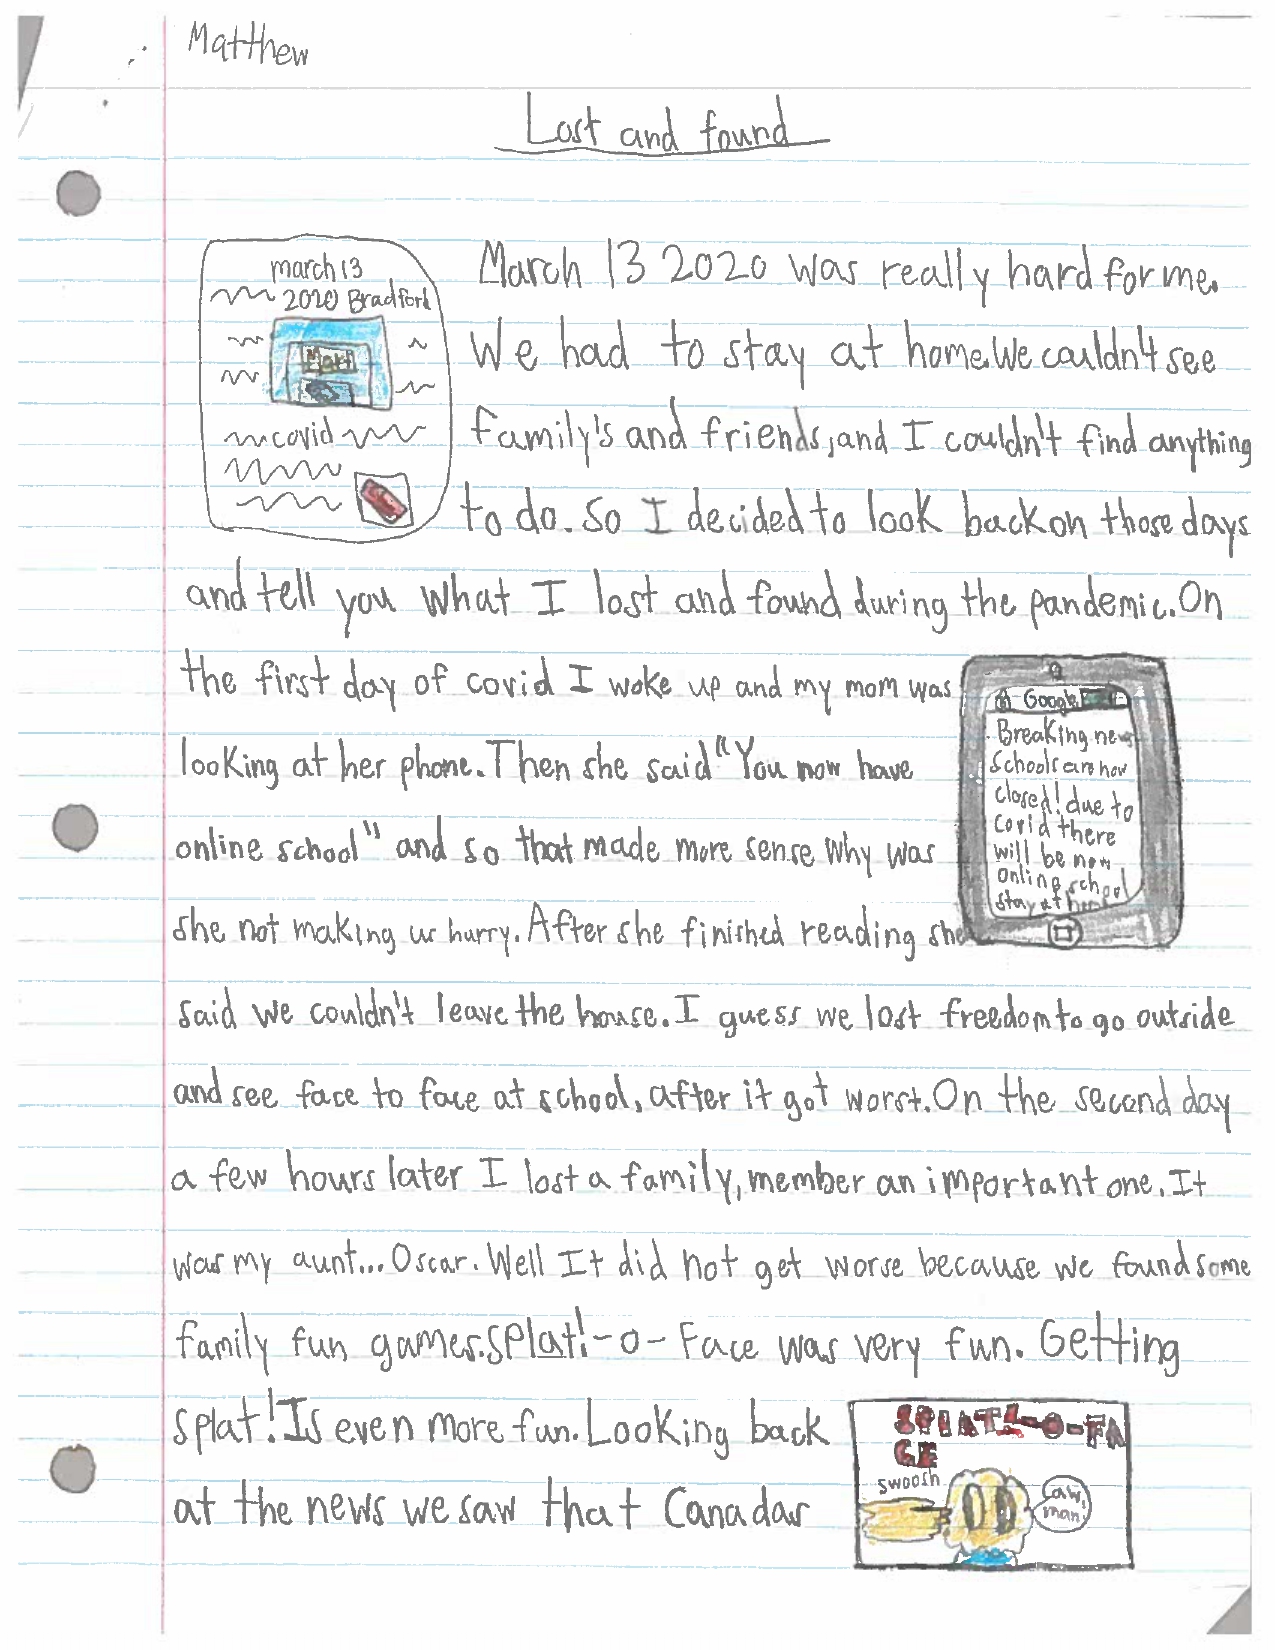 Matthew
Lost and found
march 13
2020 Bradford
covid
March 13 2020 was really hard for me.
We had to stay at home.We couldn't see
Family's and friends,and I couldn't find anything
to do. So I decided to look back on those days
and tell you what I lost and found during the pandemic. On
the first day of covid I woke up and my mom was
looking at her phone. Then she said "You now have
online school" and so that made more sense why was
she not making us hurry. After she finished reading she
said we couldn't leave the house. I guess we lost freedom to go outside
and see face to face at school, after it got worst. On the second day
a few hours later I lost a family, member an important one. It
was my aunt... Oscar. Well It did not get worse because we found some
family fun games.Splat!-o-Face was very fun. Getting
Splat! Is even more fun. Looking back
at the news we saw that Canadas
Google
Breaking news
Schools are now
closed! due to
Covid there
will be now
online school
stay at home
SPLAT!-O-FA
CE
swoosh
man